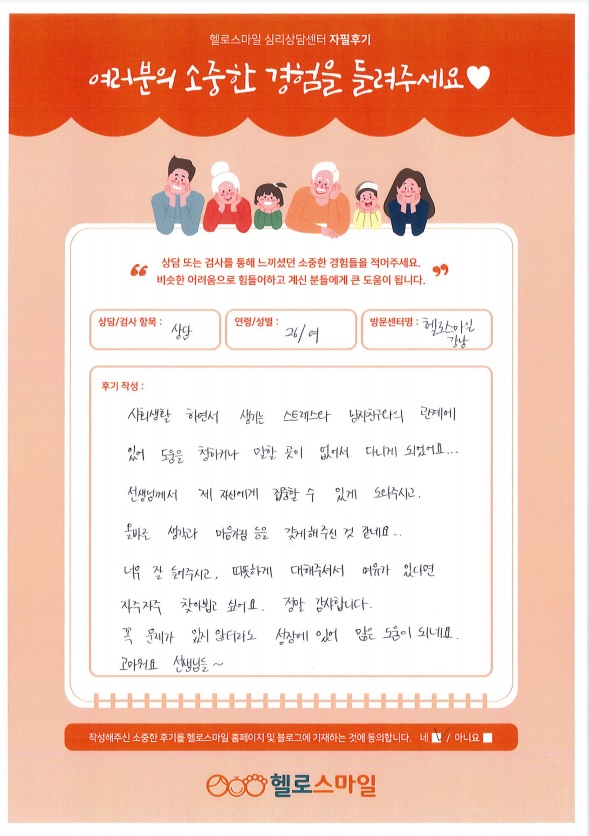 헬로스마일 심리상담센터 자필후기
여러분의 소중한 경험을 들려주세요
상담 또는 검사를 통해 느끼셨던 소중한 경험들을 적어주세요.
비슷한 어려움으로 힘들어하고 계신 분들에게 큰 도움이 됩니다.
상담/검사 항목 : 상담
연령/성별 : 26/여
방문센터명 : 헬로스마일 강남
후기 작성 :
사회생활 하면서 생기는 스트레스와 남자친구와의 관계에
있어 도움을 청하거나 말할 곳이 없어서 다니게 되었어요...
선생님께서 제 자신에게 집중할 수 있게 도와주시고.
올바른 생각과 마음가짐 등을 갖게 해주신 것 같네요..
너무 잘 들어주시고, 따뜻하게 대해주셔서 여유가 있다면
자주자주 찾아뵙고 싶어요. 정말 감사합니다.
꼭 문제가 있지 않더라도 성장에 있어 많은 도움이 되네요.
고마워요 선생님들~
작성해주신 소중한 후기를 헬로스마일 홈페이지 및 블로그에 기재하는 것에 동의합니다. 네 / 아니요
헬로스마일